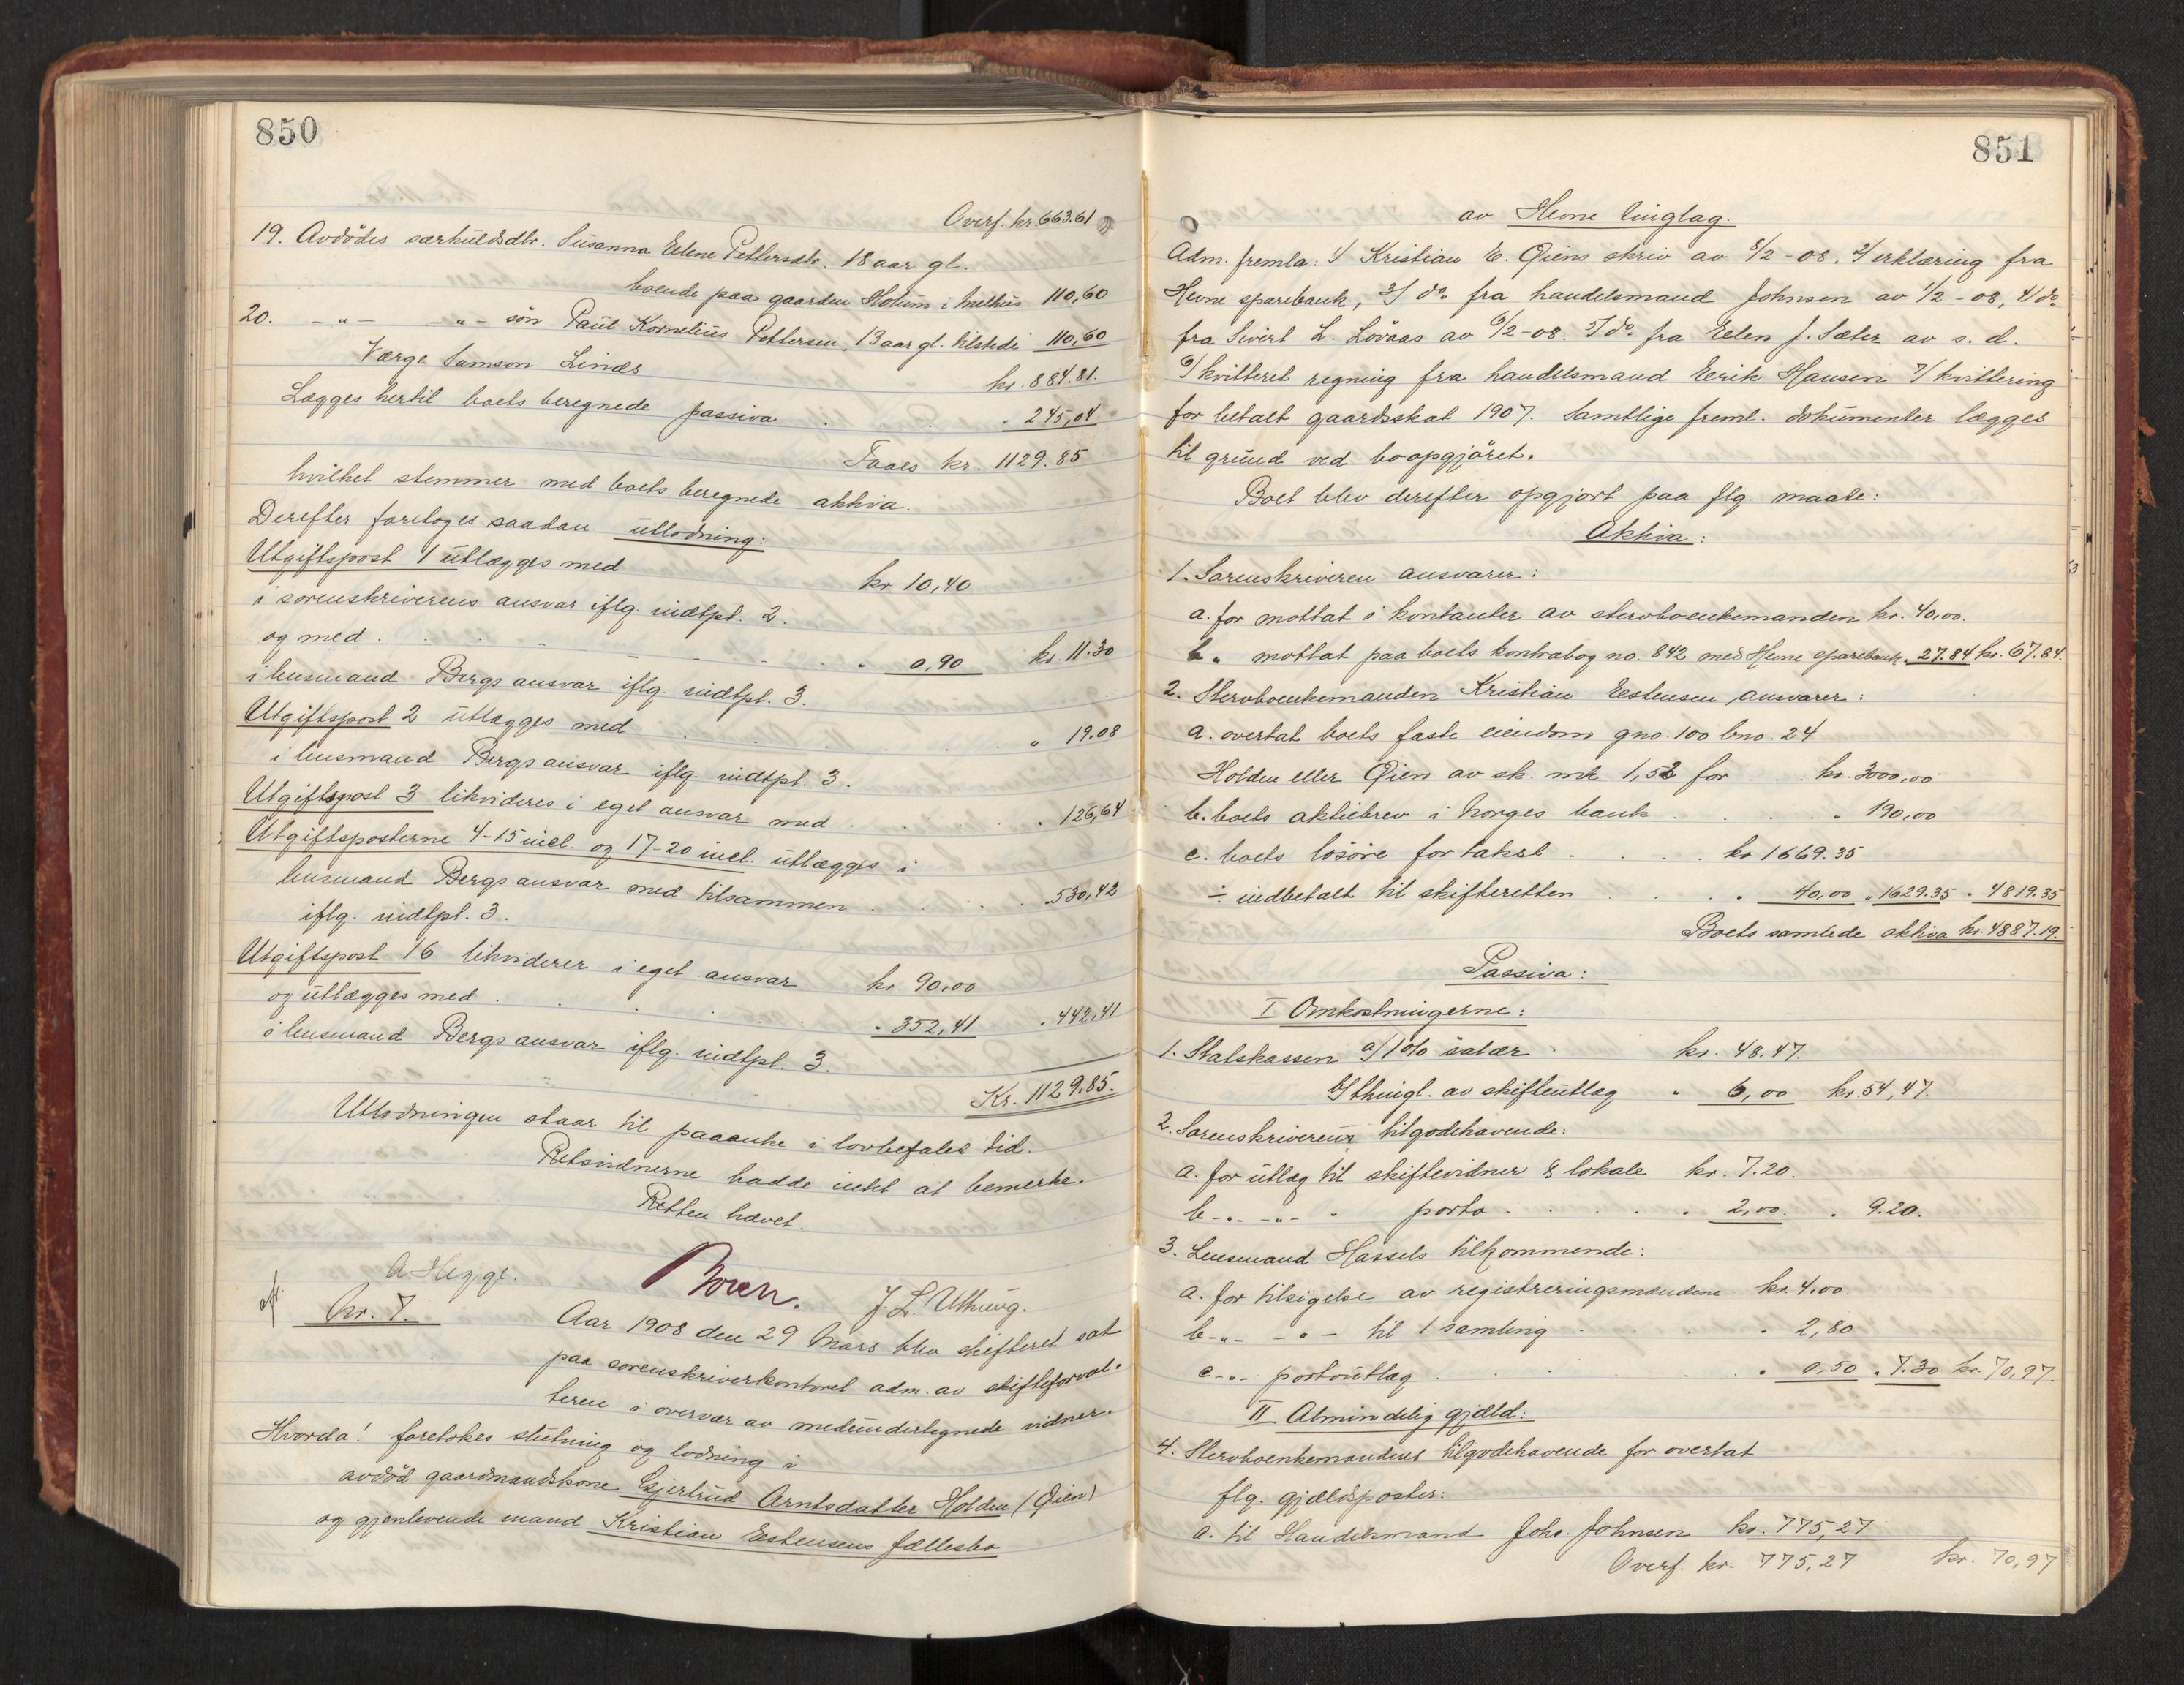 850
Overf. kr. 663.61
19. Avdödes særkuldsdtr. Susanna Elene Pettersdtr. 18 aar gl.
boende paa gaarden Holum i Melhus 110,60
20. -"- -"- sön Paul Kornelius Pettersen, 13 aar gl. tilstede 110,60
Værge Samson Linds
kr. 884.81.
Lægges hertil boets beregnede passiva . . . . 245,04
Faaes kr. 1129.85
hvilket stemmer med boets beregnede aktiva.
Derefter foretoges saadan utlodning:
Utgiftspost 1 utlægges med kr 10,40
i sorenskriverens ansvar iflg. indtpt. 2.
og med . . . . " 0,90 kr. 11.30
i lensmand Bergs ansvar iflg. indtpt. 3.
Utgiftspost 2 utlægges med . . . . " 19.08
i lensmand Bergs ansvar iflg. indtpt. 3.
Utgiftspost 3 likvideres i eget ansvar med . . . . " 126,64
Utgiftsposterne 4-15 incl. og 17-20 incl. utlægges i
lensmand Bergs ansvar med tilsammen . . . . " 530,42
iflg. indtpt. 3.
Utgiftspost 16 likviderer i eget ansvar kr 90,00
og utlægges med . . . . " 352,41 " 442,41
i lensmand Bergs ansvar iflg. indtpt. 3.
Kr. 1129.85.
Utlodningen staar til paaanke i lovbefalet tid.
Retsvidnerne hadde intet at bemerke.
Retten hævet.
A. Hegge. Boien. J. L. Uthung.
Nr. 7. Aar 1908 den 29 Mars blev skifteret sat
paa sorenskriverkontoret adm. av skifteforval-
teren i overvær av medundertegnede vidner.
Hvorda! foretokes slutning og lodning i
avdöd gaardmandskone Gjertrud Arntsdatter Holden (Øien)
og gjenlevende mand Kristian Estensens fællesbo
851
av Hevne tinglag.
Adm. fremla: 1/ Kristian E. Øiens skriv av 8/2-08. 2/ erklæring fra
Hevne sparebank, 3/ do. fra handelsmand Johnsen av 1/2-08, 4/ do
fra Sivert L. Lövaas av 6/2-08. 5/ do. fra Elen J. Sæter av s. d.
6/ kvitteret regning fra handelsmand Eerik Hansen 7/ kvittering
for betalt gaardsskat 1907. Samtlige freml. dokumenter lægges
til grund ved boopgjöret.
Boet blev derefter opgjort paa flg. maate:
Aktiva:
1. Sorenskriveren ansvarer:
a. for mottat i kontanter av stervboenkemanden kr. 40,00.
b " mottat paa boets kontrabog no. 842 med Hevne sparebank " 27.84 kr. 67.84.
2. Stervboenkemanden Kristian Eestensen ansvarer:
a. overtat boets faste eiendom gno. 100 bno. 24
Holden eller Øien av sk. mk 1,52 for . . kr. 3000,00
b. boets aktiebrev i Norges bank . . . . " 190,00
c. boets lösöre for takst . . . . kr 1669.35
÷ indbetalt til skifteretten . . . . " 40,00 " 1629.35 " 4819.35
Boets samlede aktiva kr. 4887.19.
Passiva:
I Omkostningerne:
1. Statskassen a/ 1% salær . kr. 48.47.
b/ thingl. av skifteutlæg " 6,00 kr. 54,47.
2. Sorenskriverens tilgodehavende:
a. for utlæg til skiftevidner & lokale kr. 7.20.
b -"- -"- " porto . . . . . " 2,00. " 9.20.
3. Lensmand Hassels tilkommende:
a. for tilsigelse av registreringsmændene kr. 4.00.
b -"- -"- til 1 samling . . . . " 2,80
c -"- portoutlæg . . . . " 0,50 " 7.30 kr. 70,97.
II Almindelig gjæld:
4. Stervboenkemandens tilgodehavende for overtat
flg. gjældsposter:
a. til Handelsmand Johs. Johnsen kr. 775,27
Overf. kr. 775,27 kr. 70,97